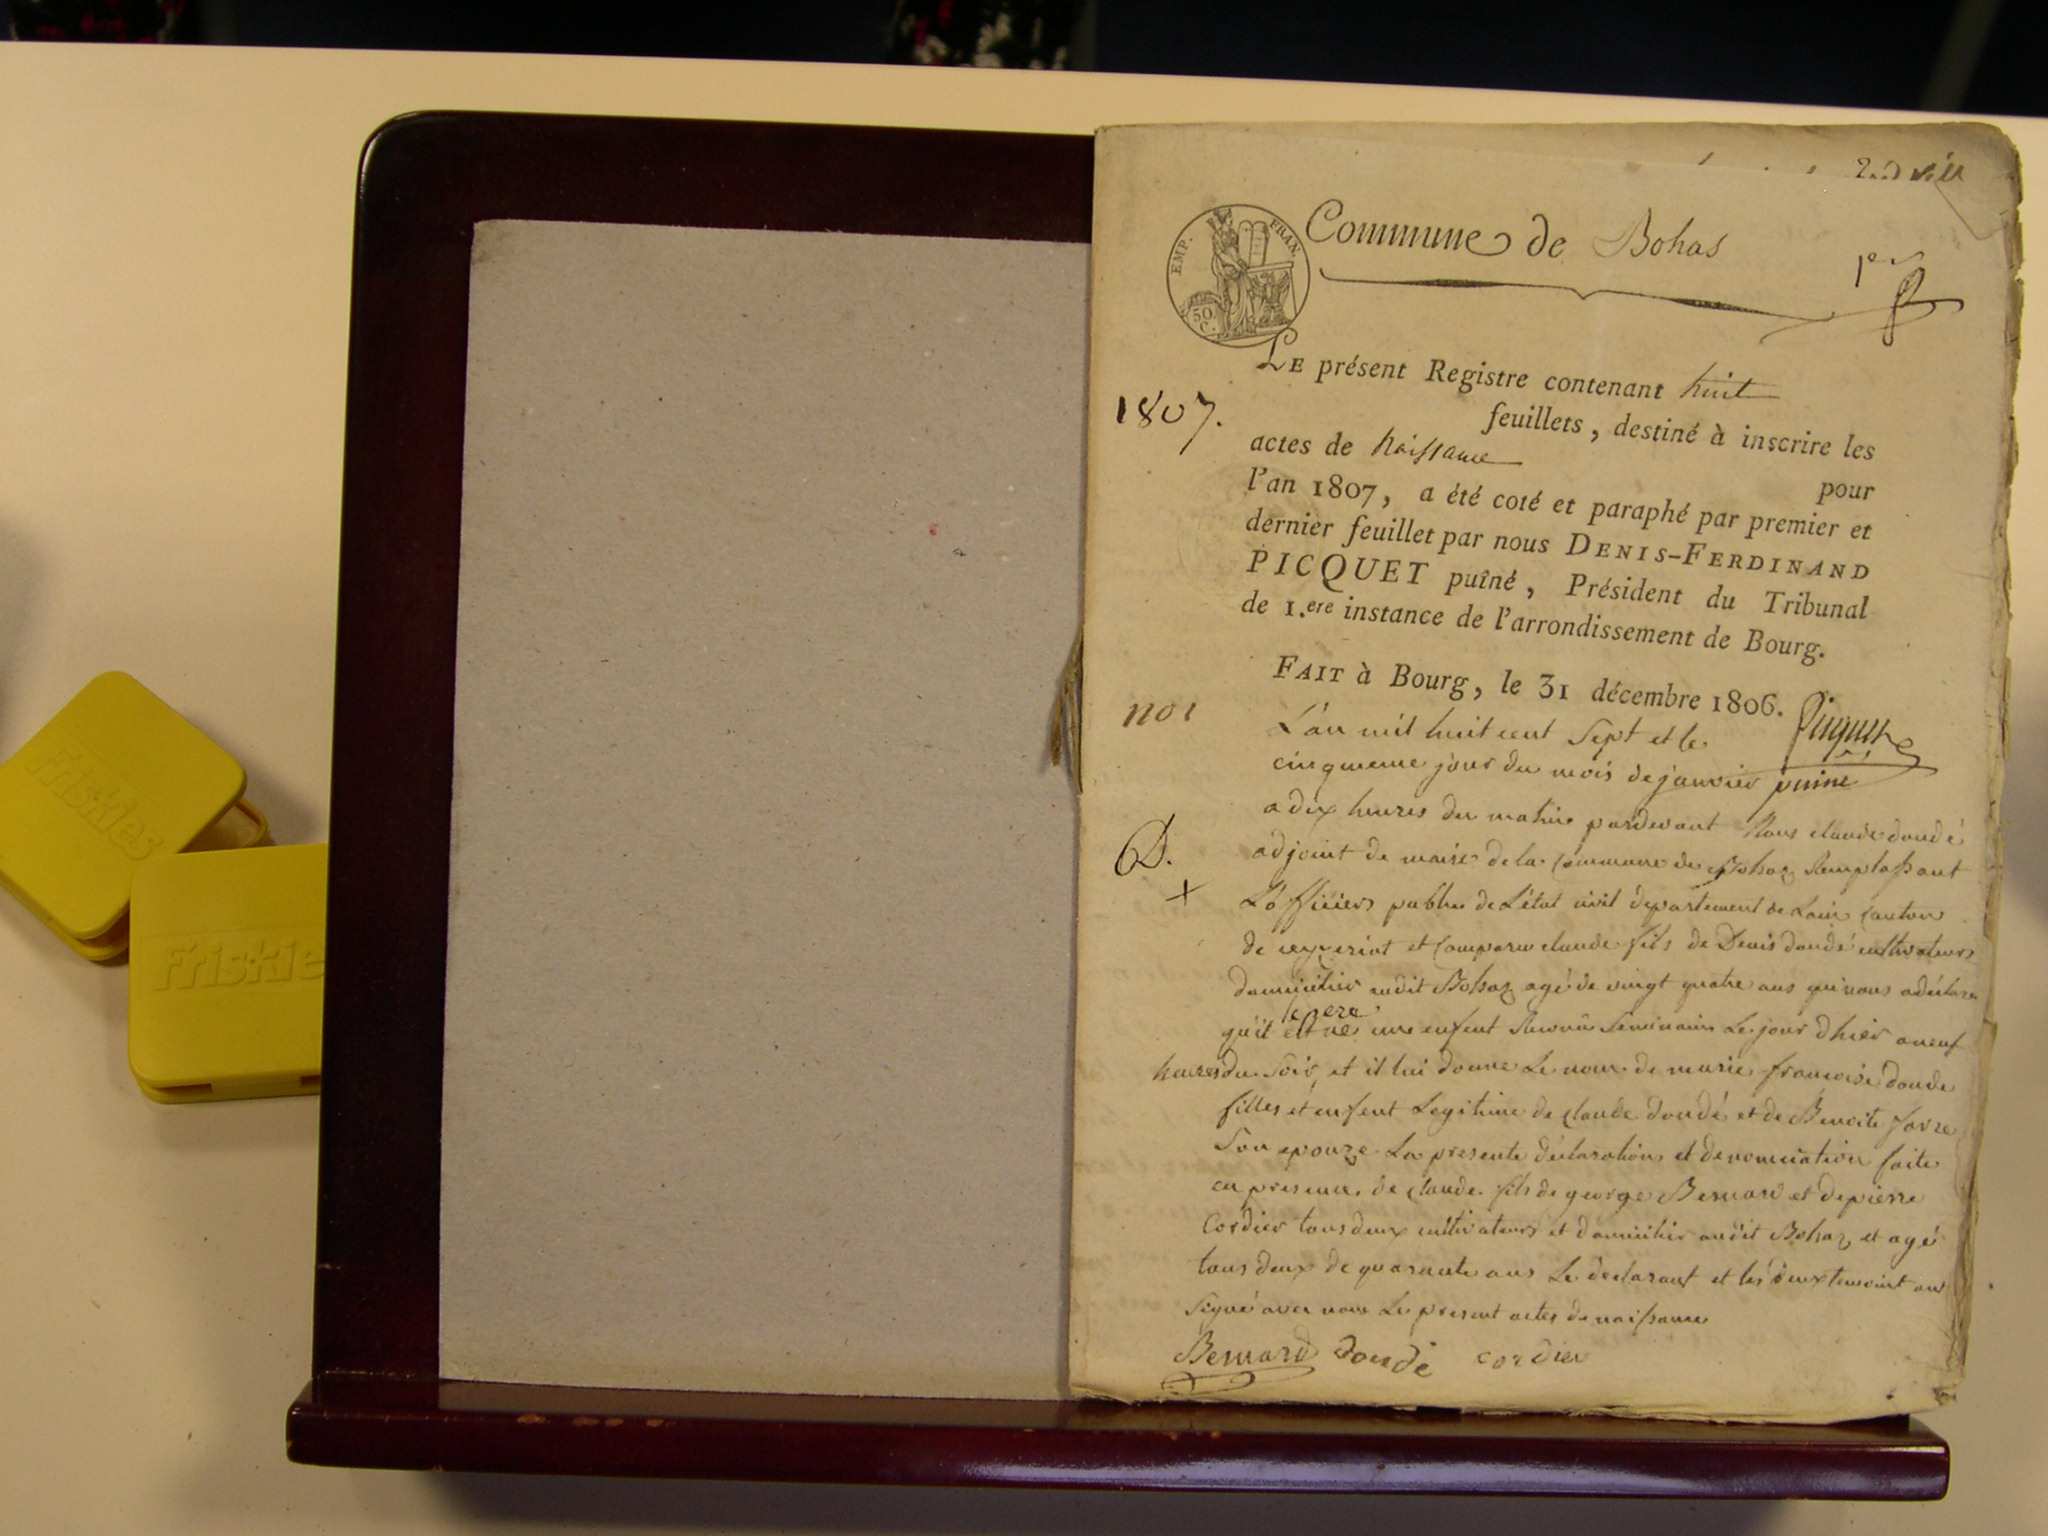 Friskies
Friskie
EMP. FRAN.
50
C.
Commune de Bohas
1er
1807.
LE présent Registre contenant huit
feuillets, destiné à inscrire les
actes de Naissance
pour
l'an 1807, a été coté et paraphé par premier et
dernier feuillet par nous DENIS-FERDINAND
PICQUET puîné, Président du Tribunal
de 1.ere instance de l'arrondissement de Bourg.
FAIT à Bourg, le 31 décembre 1806.
Picquet
puiné
no 1
L'an mil huit cent Sept et le
cinquieme jour du mois de janvier
a dix heures du matin pardevant Nous claude doudé
adjoint de maire de la Commune de Bohaz Remplassant
L'officiers public de L'état civil département de Lain canton
de ceyzeriat et Comparu claude fils de Denis doudé cultivateurs
domicilier audit Bohaz agé de vingt quatre ans qui nous a déclare
qu'il est né une enfent le jour d'hier a neuf
heures du Soir, et il lui donne Le nom de marie francoise doude
filles et enfent Legitime de claude doudé et de Benoite
Son epouze La presente déclaration et denomination faite
en presence de claude fils de george Bernard et de pierre
Cordier tous deux cultivateurs et domicilier audit Bohaz et agé
tous deux de quarante ans Le déclarant et les deux temoint on
Signé avec nous Le present actes de naissance
Bernard doudé cordier